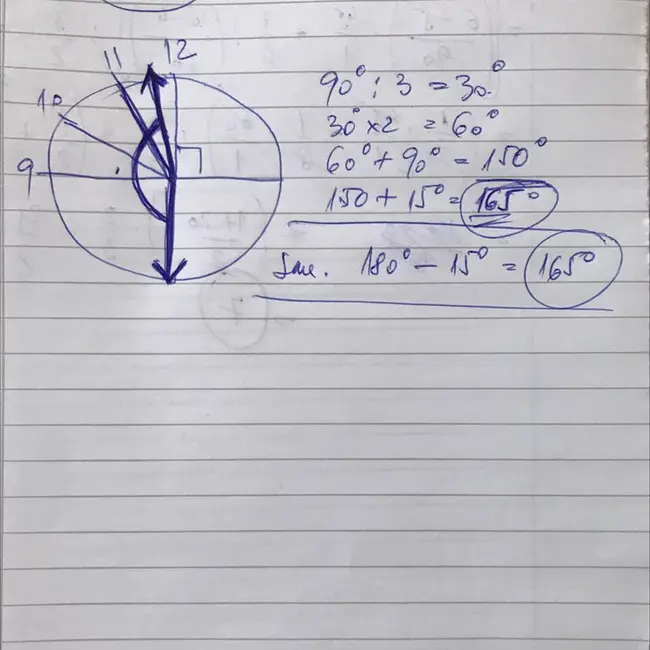 12
11
10
9
90° : 3 = 30°
30° × 2 = 60°
60° + 90° = 150°
150 + 15° = 165°
180° - 15° = 165°